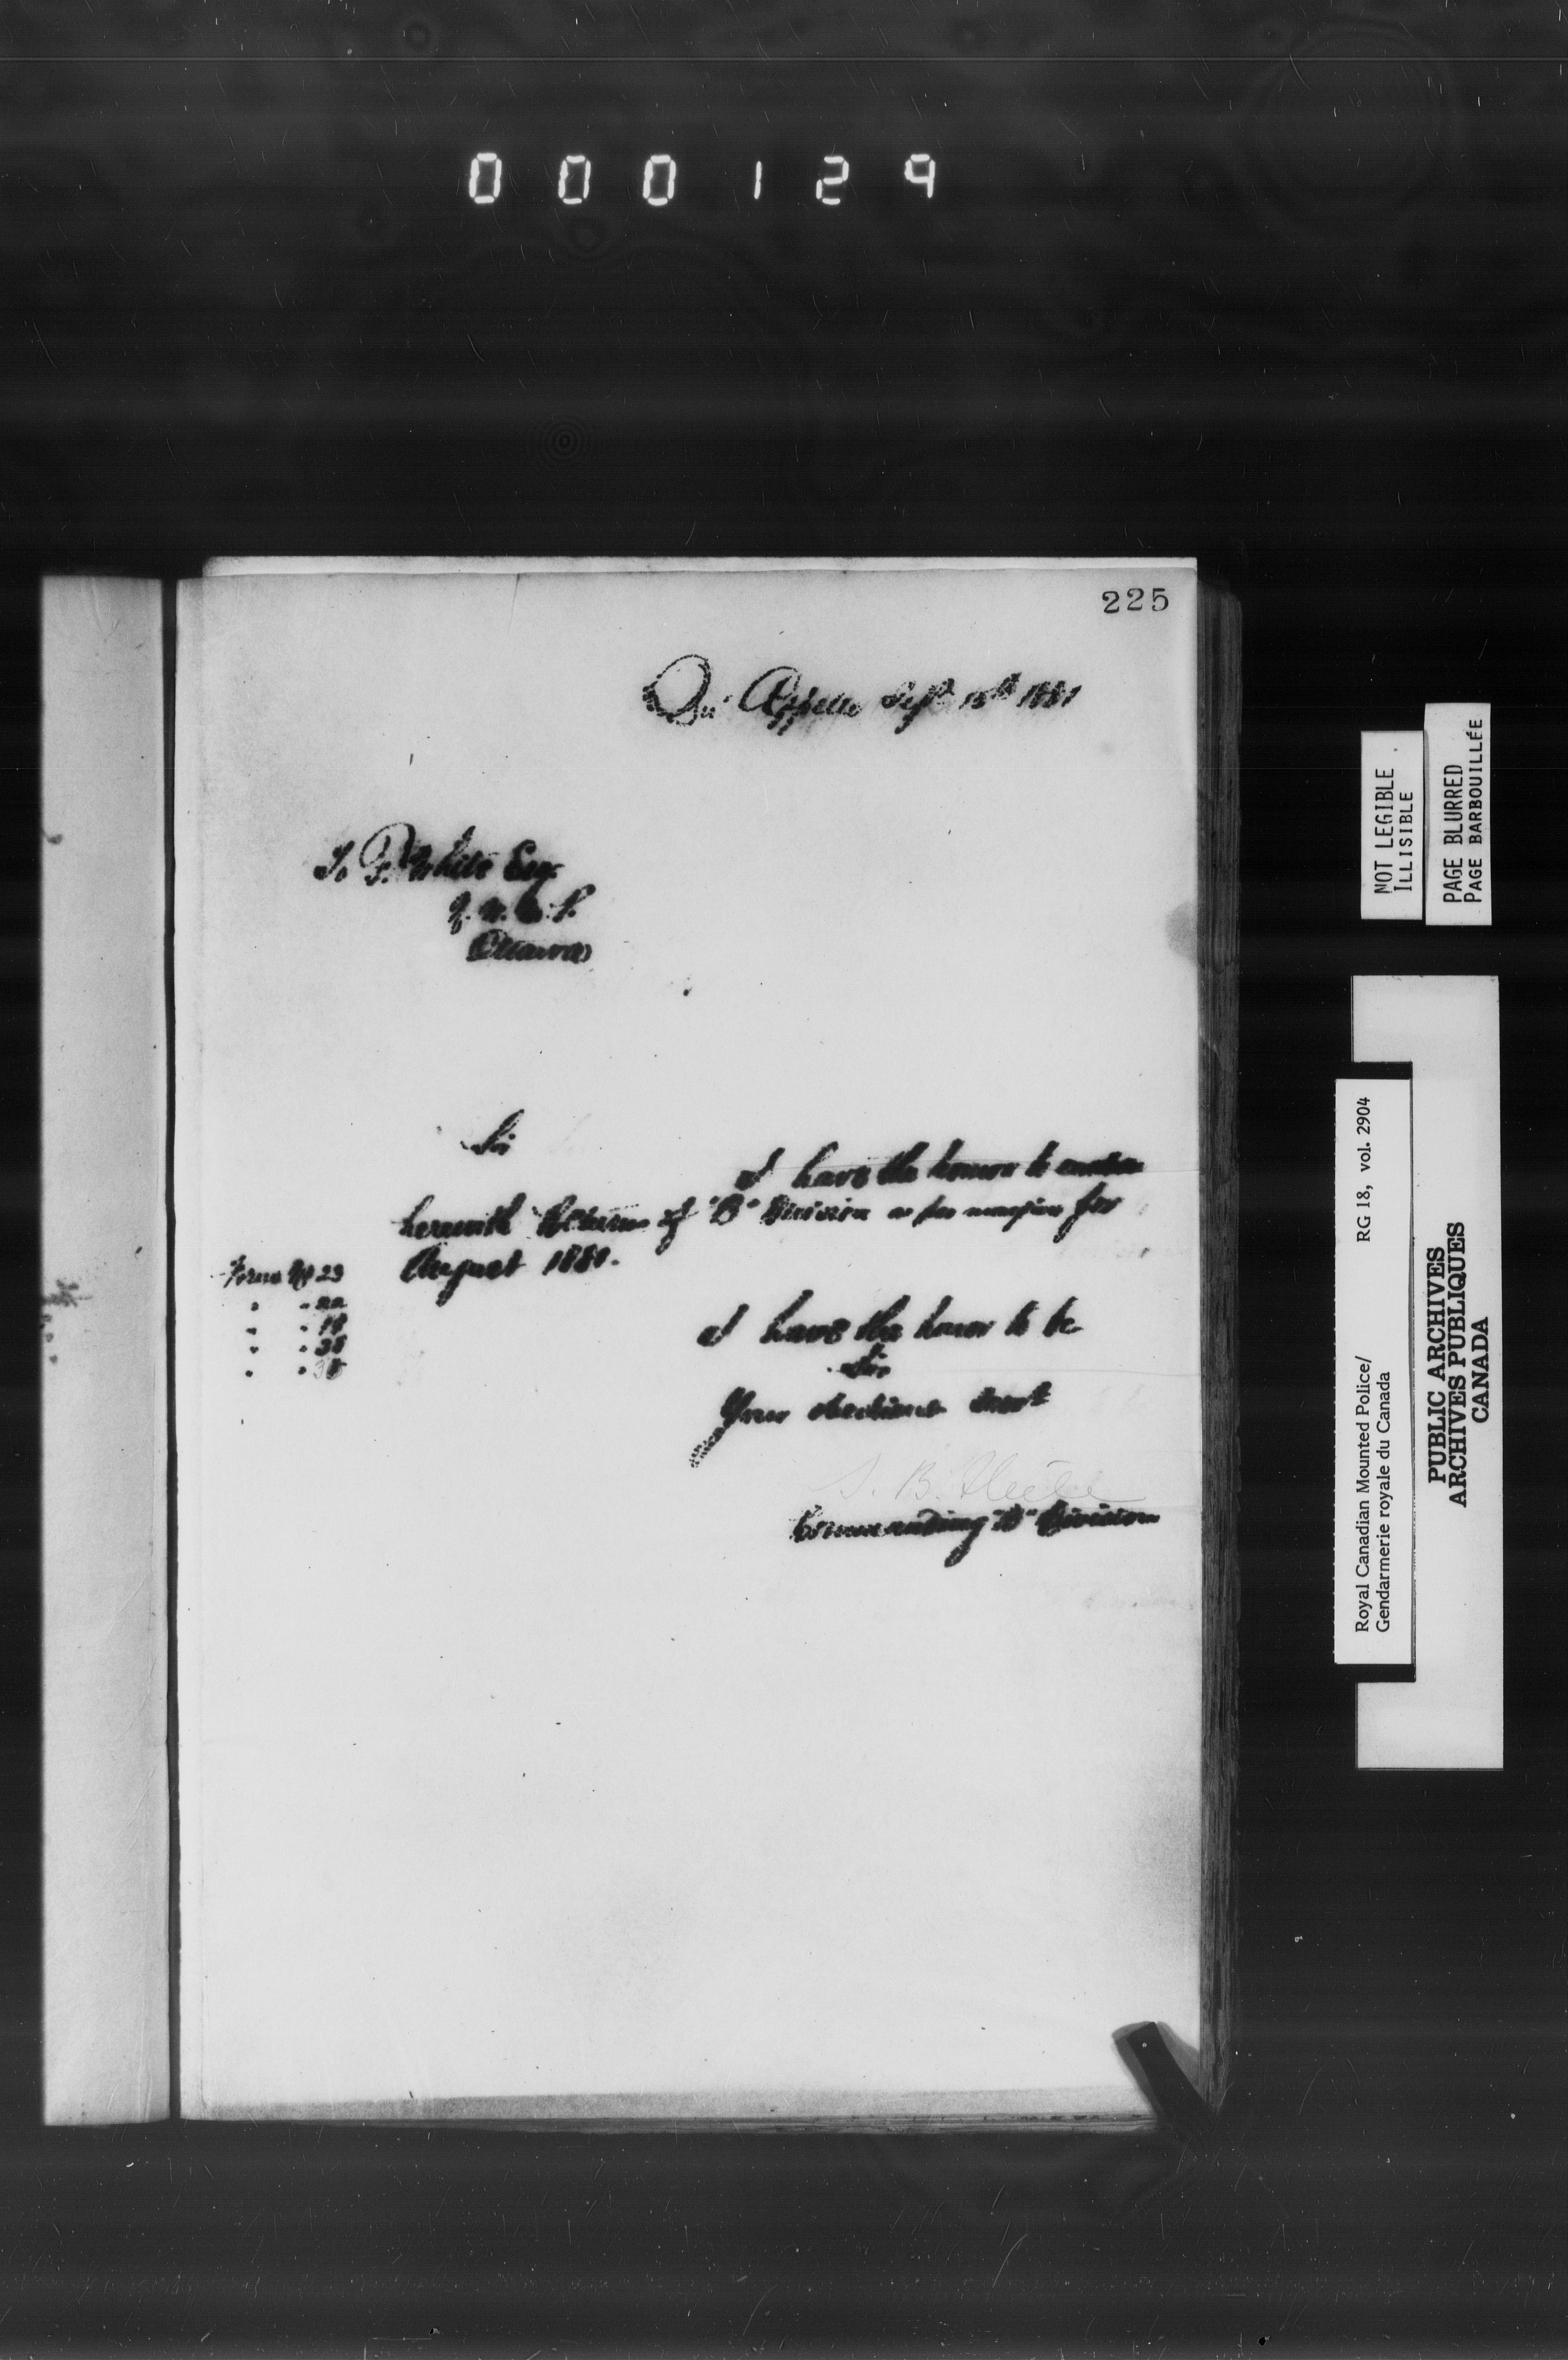 000129
225
Qu'Appelle Sept 15th 1881
To F. White Esq
N. W. M. P.
Ottawa
Sir
I have the honor to enclose
herewith Returns of "B" Division as per margin for
August 1881.
Forms No 23
" " 22
" " 18
" " 38
I have the honor to be
Sir
Your obedient servt
S. B. Steele
Commanding "B" Division
NOT LEGIBLE
ILLISIBLE
PAGE BLURRED
PAGE BARBOUILLÉE
Royal Canadian Mounted Police/ RG 18, vol. 2904
Gendarmerie royale du Canada
PUBLIC ARCHIVES
ARCHIVES PUBLIQUES
CANADA